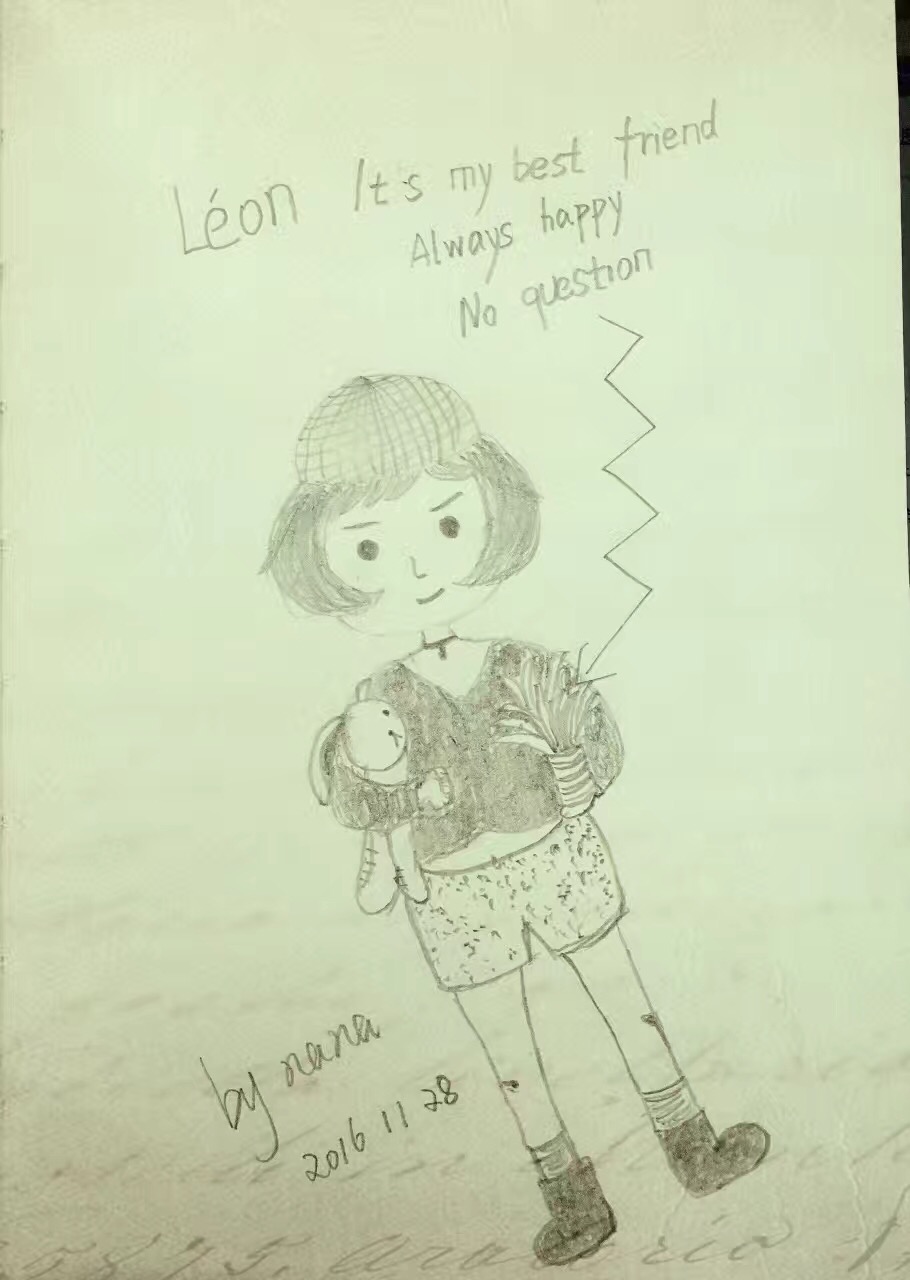 Léon It's my best friend
Always happy
No question
by nana
2016 11 28